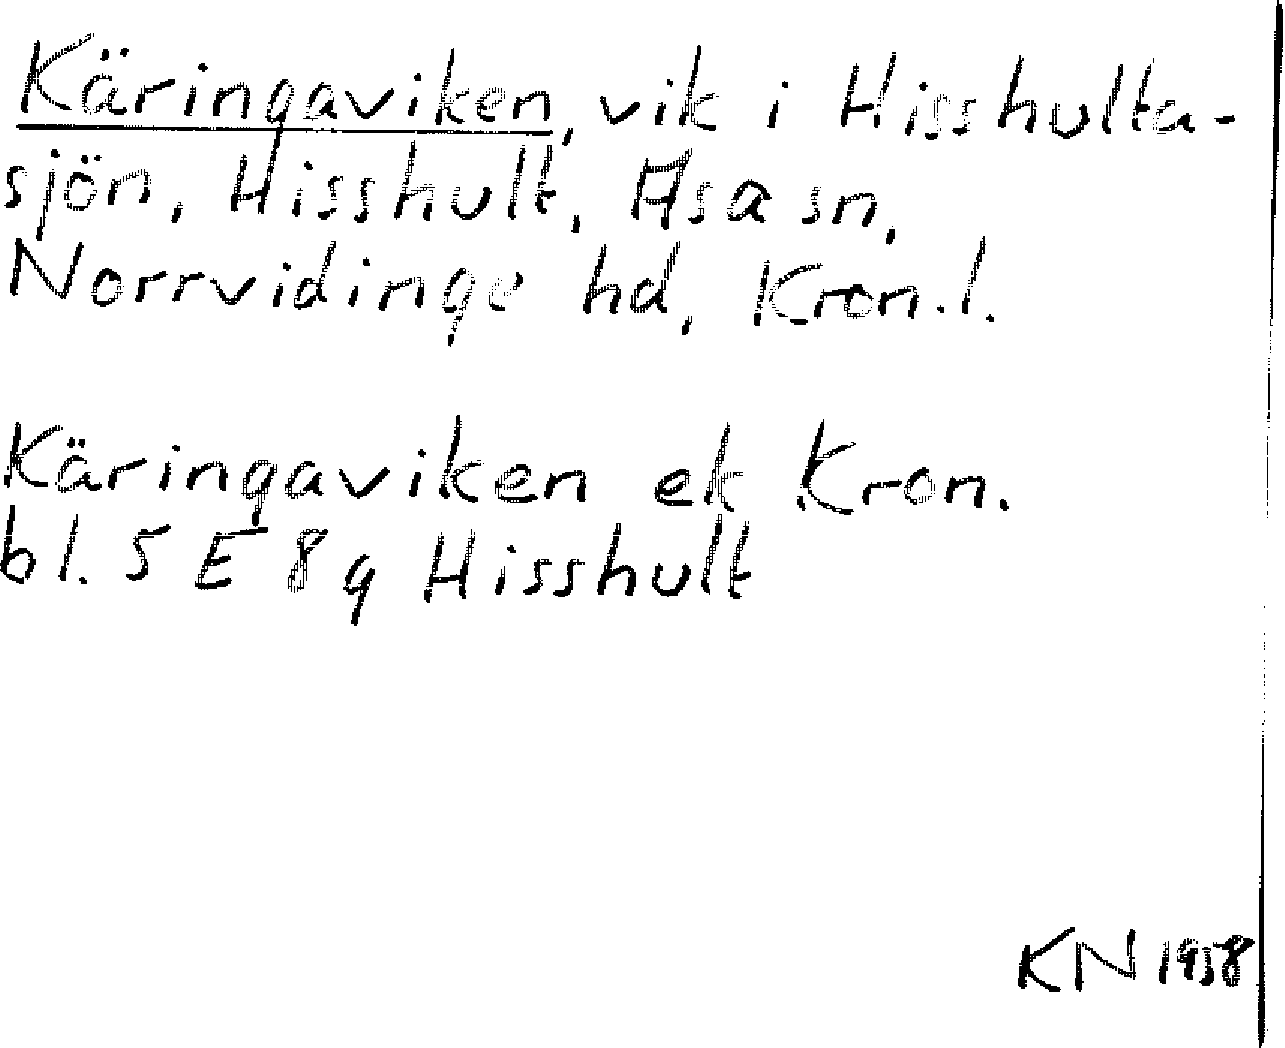 Käringaviken, vik i Hisshulta-
sjön, Hisshult, Asa sn,
Norrvidinge hd, Kron. l.
Käringaviken ek Kron.
bl. 5 E 8 g Hisshult
KN 1958